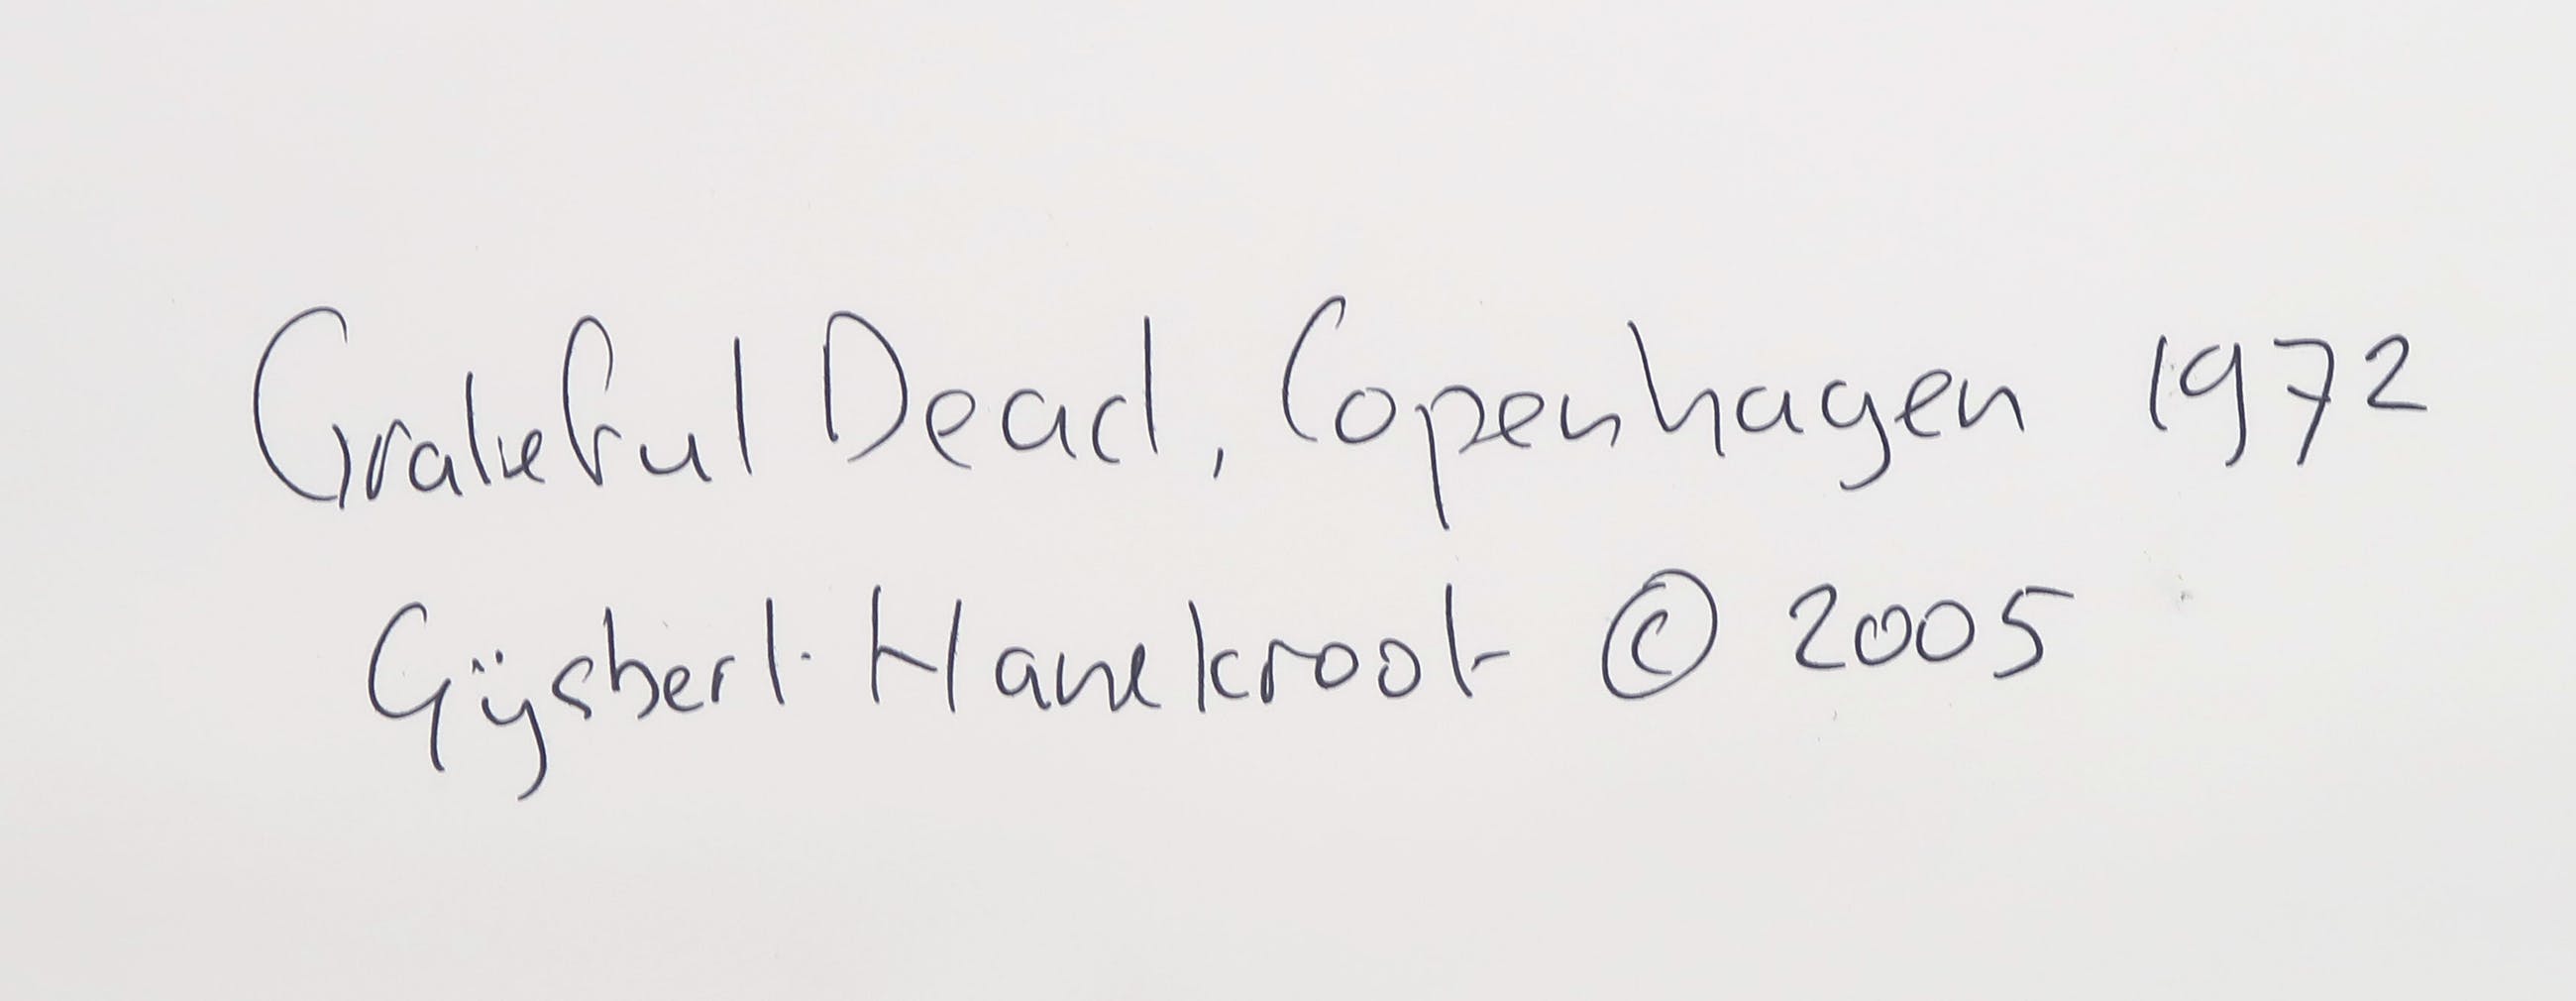 Grateful Dead, Copenhagen 1972
Gijsbert Hanekroot © 2005